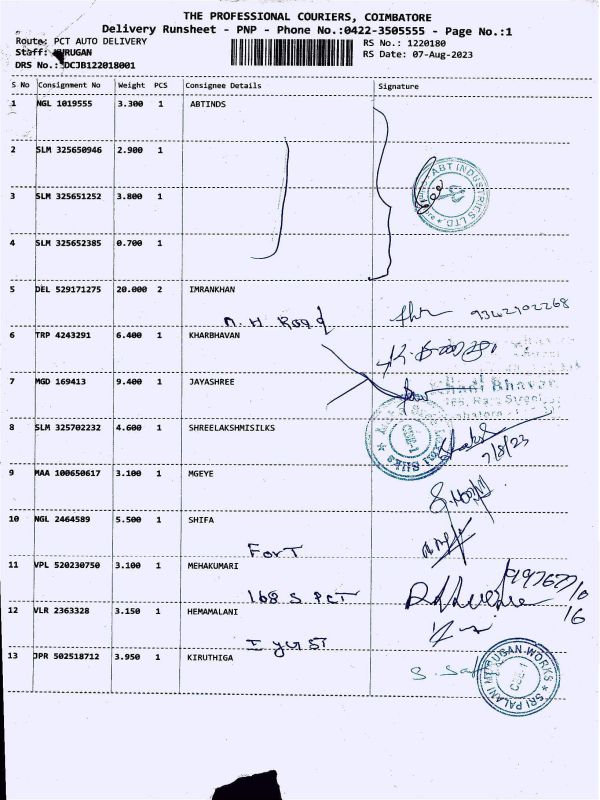 THE PROFESSIONAL COURIERS, COIMBATORE
Delivery Runsheet - PNP - Phone No.:0422-3505555 - Page No.:1
Route: PCT AUTO DELIVERY
RS No.: 1220180
Staff: MURUGAN
RS Date: 07-Aug-2023
DRS No.: DCJB122018001
S No Consignment No Weight PCS Consignee Details Signature
1 NGL 1019555 3.300 1 ABTINDS
2 SLM 325650946 2.900 1
ABT INDUSTRIES LTD.
3 SLM 325651252 3.800 1
4 SLM 325652385 0.700 1
5 DEL 529171275 20.000 2 IMRANKHAN
N. H Road 9362102268
6 TRP 4243291 6.400 1 KHARBHAVAN
7 MGD 169413 9.400 1 JAYASHREE
Bhavan
8 SLM 325702232 4.600 1 SHREELAKSHMISILKS
CBE-1
Silks
7/8/23
9 MAA 100650617 3.100 1 MGEYE
10 NGL 2464589 5.500 1 SHIFA
Fort
11 VPL 520230750 3.100 1 MEHAKUMARI
168 S. PCT
12 VLR 2363328 3.150 1 HEMAMALANI
13 JPR 502518712 3.950 1 KIRUTHIGA
SRI PALANI MURUGAN WORKS
CBE-1